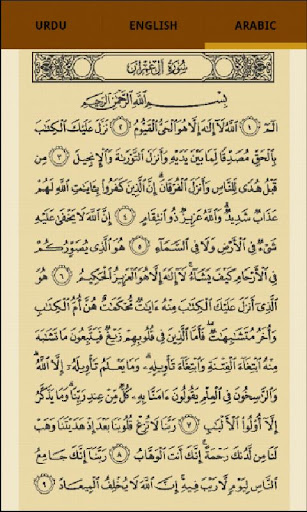 URDU ENGLISH ARABIC
سُورَةُ آلِ عِمْرَان
بِسْمِ اللَّهِ الرَّحْمَٰنِ الرَّحِيمِ
الٓمٓ ۝١ اللَّهُ لَا إِلَٰهَ إِلَّا هُوَ الْحَيُّ الْقَيُّومُ ۝٢ نَزَّلَ عَلَيْكَ الْكِتَابَ
بِالْحَقِّ مُصَدِّقًا لِمَا بَيْنَ يَدَيْهِ وَأَنزَلَ التَّوْرَىٰةَ وَالْإِنجِيلَ ۝٣ مِن
قَبْلُ هُدًى لِلنَّاسِ وَأَنزَلَ الْفُرْقَانَ ۗ إِنَّ الَّذِينَ كَفَرُوا بِـَٔايَٰتِ اللَّهِ لَهُمْ
عَذَابٌ شَدِيدٌ ۗ وَاللَّهُ عَزِيزٌ ذُو انتِقَامٍ ۝٤ إِنَّ اللَّهَ لَا يَخْفَىٰ عَلَيْهِ
شَيْءٌ فِي الْأَرْضِ وَلَا فِي السَّمَآءِ ۝٥ هُوَ الَّذِي يُصَوِّرُكُمْ
فِي الْأَرْحَامِ كَيْفَ يَشَآءُ ۚ لَا إِلَٰهَ إِلَّا هُوَ الْعَزِيزُ الْحَكِيمُ ۝٦ هُوَ
الَّذِي أَنزَلَ عَلَيْكَ الْكِتَٰبَ مِنْهُ ءَايَٰتٌ مُحْكَمَٰتٌ هُنَّ أُمُّ الْكِتَٰبِ
وَأُخَرُ مُتَشَٰبِهَٰتٌ ۖ فَأَمَّا الَّذِينَ فِي قُلُوبِهِمْ زَيْغٌ فَيَتَّبِعُونَ مَا تَشَٰبَهَ
مِنْهُ ابْتِغَآءَ الْفِتْنَةِ وَابْتِغَآءَ تَأْوِيلِهِ ۗ وَمَا يَعْلَمُ تَأْوِيلَهُ إِلَّا اللَّهُ ۗ
وَالرَّٰسِخُونَ فِي الْعِلْمِ يَقُولُونَ ءَامَنَّا بِهِ كُلٌّ مِنْ عِندِ رَبِّنَا ۗ وَمَا يَذَّكَّرُ
إِلَّا أُولُوا الْأَلْبَٰبِ ۝٧ رَبَّنَا لَا تُزِغْ قُلُوبَنَا بَعْدَ إِذْ هَدَيْتَنَا وَهَبْ
لَنَا مِن لَدُنكَ رَحْمَةً ۚ إِنَّكَ أَنتَ الْوَهَّابُ ۝٨ رَبَّنَا إِنَّكَ جَامِعُ
النَّاسِ لِيَوْمٍ لَا رَيْبَ فِيهِ ۚ إِنَّ اللَّهَ لَا يُخْلِفُ الْمِيعَادَ ۝٩